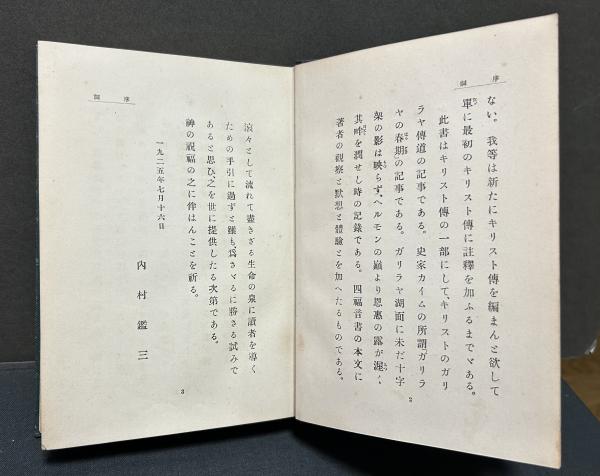 序詞
ない。我等は新たにキリスト傳を編まんと欲して
單に最初のキリスト傳に註釋を加ふるまでゞある。
此書はキリスト傳の一部にして、キリストのガリ
ラヤ傳道の記事である。史家カイムの所謂「ガリラ
ヤの春期」の記事である。ガリラヤ湖面に未だ十字
架の影は映らず、ヘルモンの巓より恩惠の露が渥く
其畔を潤せし時の記錄である。四福音書の本文に
著者の觀察と默想と體驗とを加へたるものである。
2
序詞
滾々として流れて盡きざる生命の泉に讀者を導く
ための手引に過ずと雖も、爲さゞるに勝さる試みで
あると思ひ、之を世に提供したる次第である。
神の祝福の之に伴はんことを祈る。
一九二五年七月十六日
內村鑑三
3